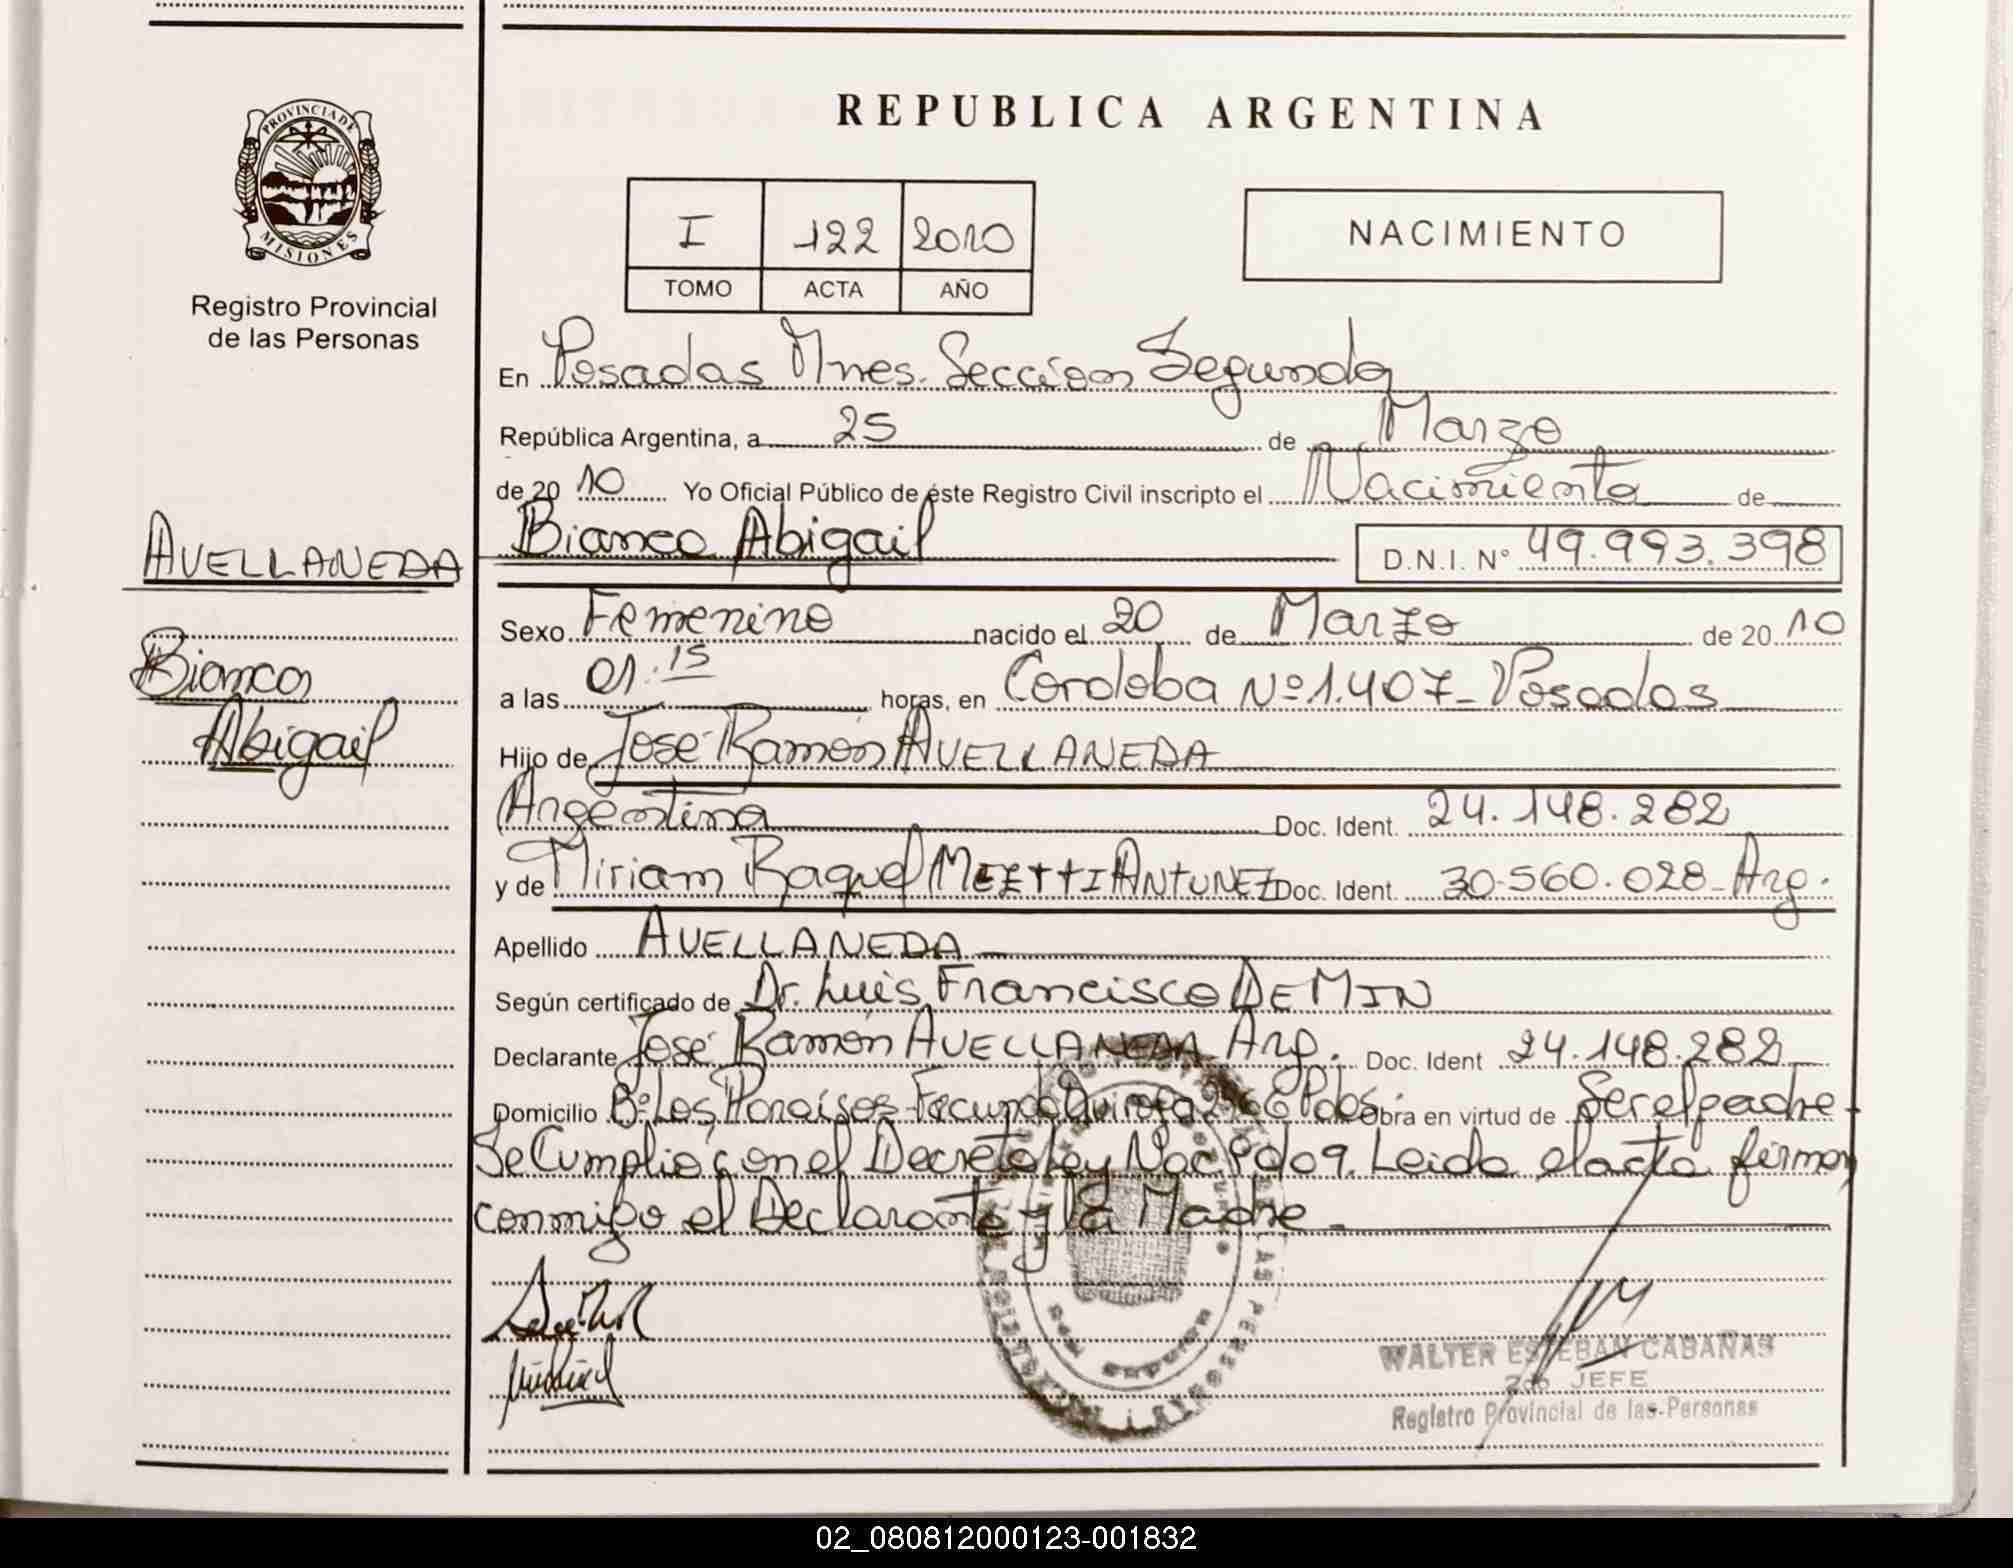 PROVINCIA DE
MISIONES
Registro Provincial
de las Personas
AVELLANEDA
Bianca
Abigail
REPUBLICA ARGENTINA
I 122 2010
TOMO ACTA AÑO
NACIMIENTO
En Posadas Mnes. Seccion Segunda
República Argentina, a 25 de Marzo
de 2010 Yo Oficial Público de éste Registro Civil inscripto el Nacimiento de
Bianca Abigail D.N.I. Nº 49.993.398
Sexo Femenino nacido el 20 de Marzo de 2010
a las 01.15 horas, en Cordoba Nº 1.407 - Posadas
Hijo de José Ramón AVELLANEDA
Argentina Doc. Ident. 24.148.282
y de Miriam Raquel ANTUNEZ Doc. Ident. 30.560.028 - Arg.
Apellido AVELLANEDA
Según certificado de Dr. Luis Francisco DEMIN
Declarante José Ramón AVELLANEDA Arg. Doc. Ident 24.148.282
Domicilio Bº Los Paraisos - Facundo Quiroga 2966 Pdas Obra en virtud de Ser el padre.
Se Cumplió con el Decreto Ley Nac. Leida el acta firman
conmigo el Declarante y la Madre.
WALTER ESTEBAN CABAÑAS
2do JEFE
Registro Provincial de las Personas
02_080812000123-001832